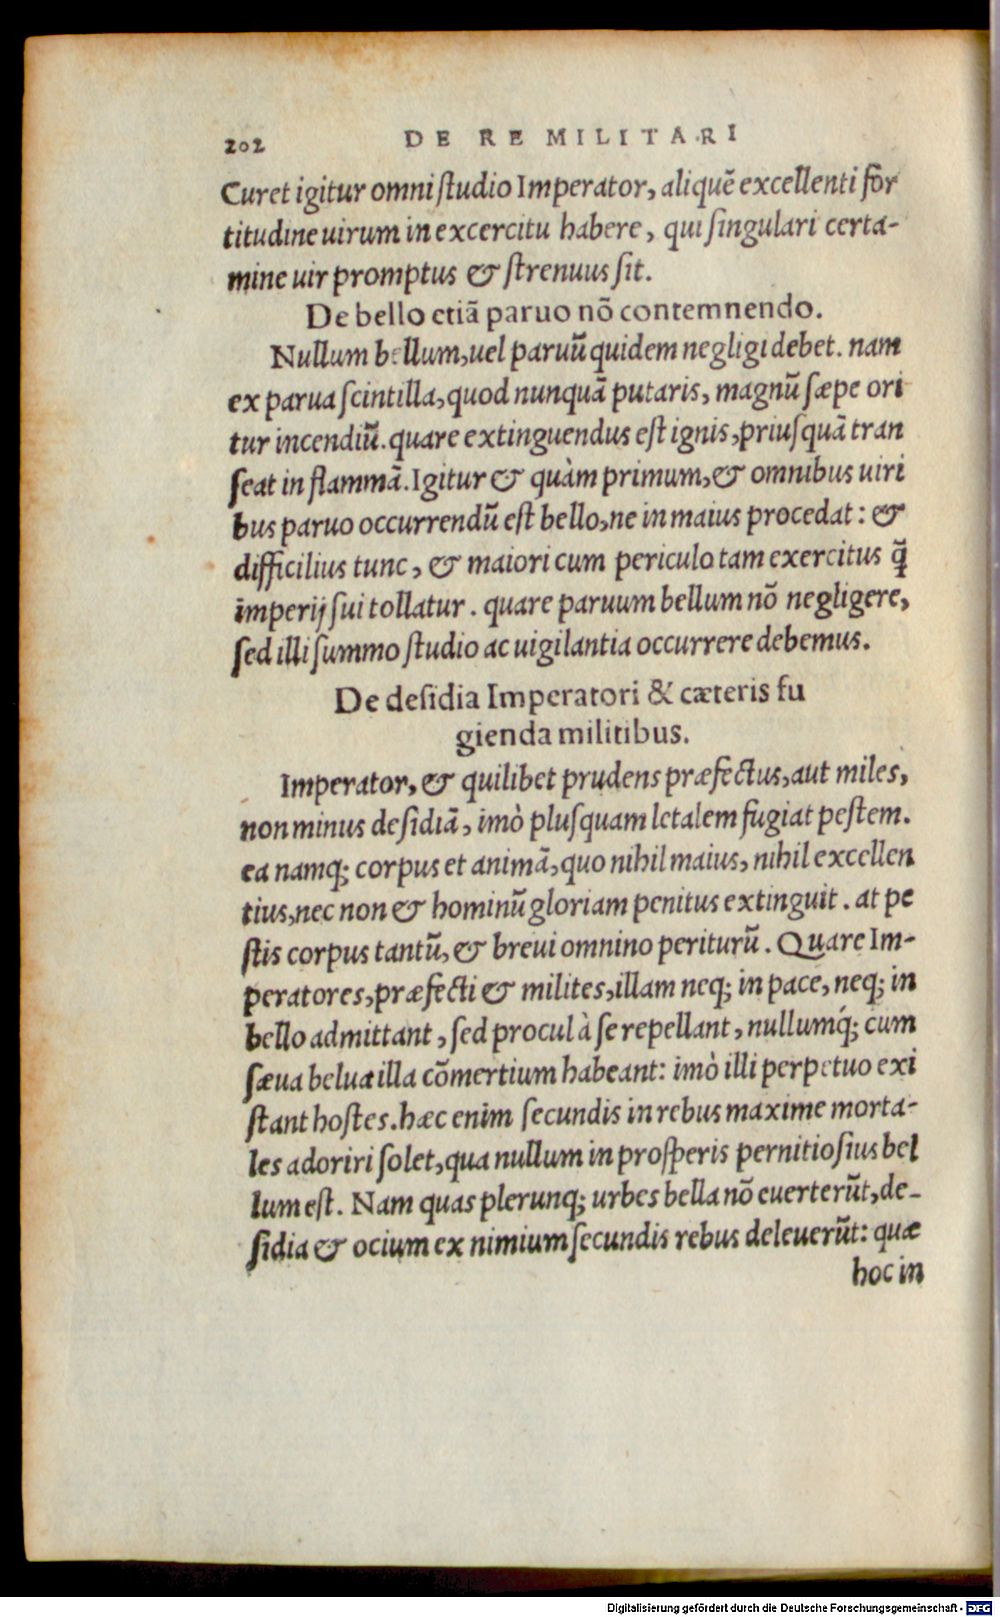 202 DE RE MILITARI
Curet igitur omni ſtudio Imperator, aliquē excellenti for
titudine uirum in excercitu habere, qui ſingulari certa-
mine uir promptus & ſtrenuus ſit.
De bello etiā paruo nō contemnendo.
Nullum bellum, uel paruū quidem negligi debet. nam
ex parua ſcintilla, quod nunquā putaris, magnū ſæpe ori
tur incendiū. quare extinguendus eſt ignis, priuſquā tran
ſeat in flammā. Igitur & quàm primum, & omnibus uiri
bus paruo occurrendū eſt bello, ne in maius procedat: &
difficilius tunc, & maiori cum periculo tam exercitus q̄
imperij ſui tollatur. quare paruum bellum nō negligere,
ſed illi ſummo ſtudio ac uigilantia occurrere debemus.
De deſidia Imperatori & cæteris fu
gienda militibus.
Imperator, & quilibet prudens præfectus, aut miles,
non minus deſidiā, imò pluſquam letalem fugiat peſtem.
ea namq; corpus et animā, quo nihil maius, nihil excellen
tius, nec non & hominū gloriam penitus extinguit. at pe
ſtis corpus tantū, & breui omnino periturū. Quare Im-
peratores, præfecti & milites, illam neq; in pace, neq; in
bello admittant, ſed procul à ſe repellant, nullumq́; cum
ſæua belua illa cōmertium habeant: imò illi perpetuo exi
ſtant hoſtes. hæc enim ſecundis in rebus maxime morta-
les adoriri ſolet, qua nullum in proſperis pernitioſius bel
lum eſt. Nam quas plerunq; urbes bella nō euerterūt, de-
ſidia & ocium ex nimium ſecundis rebus deleuerūt: quæ
hoc in
Digitalisierung gefördert durch die Deutsche Forschungsgemeinschaft - DFG